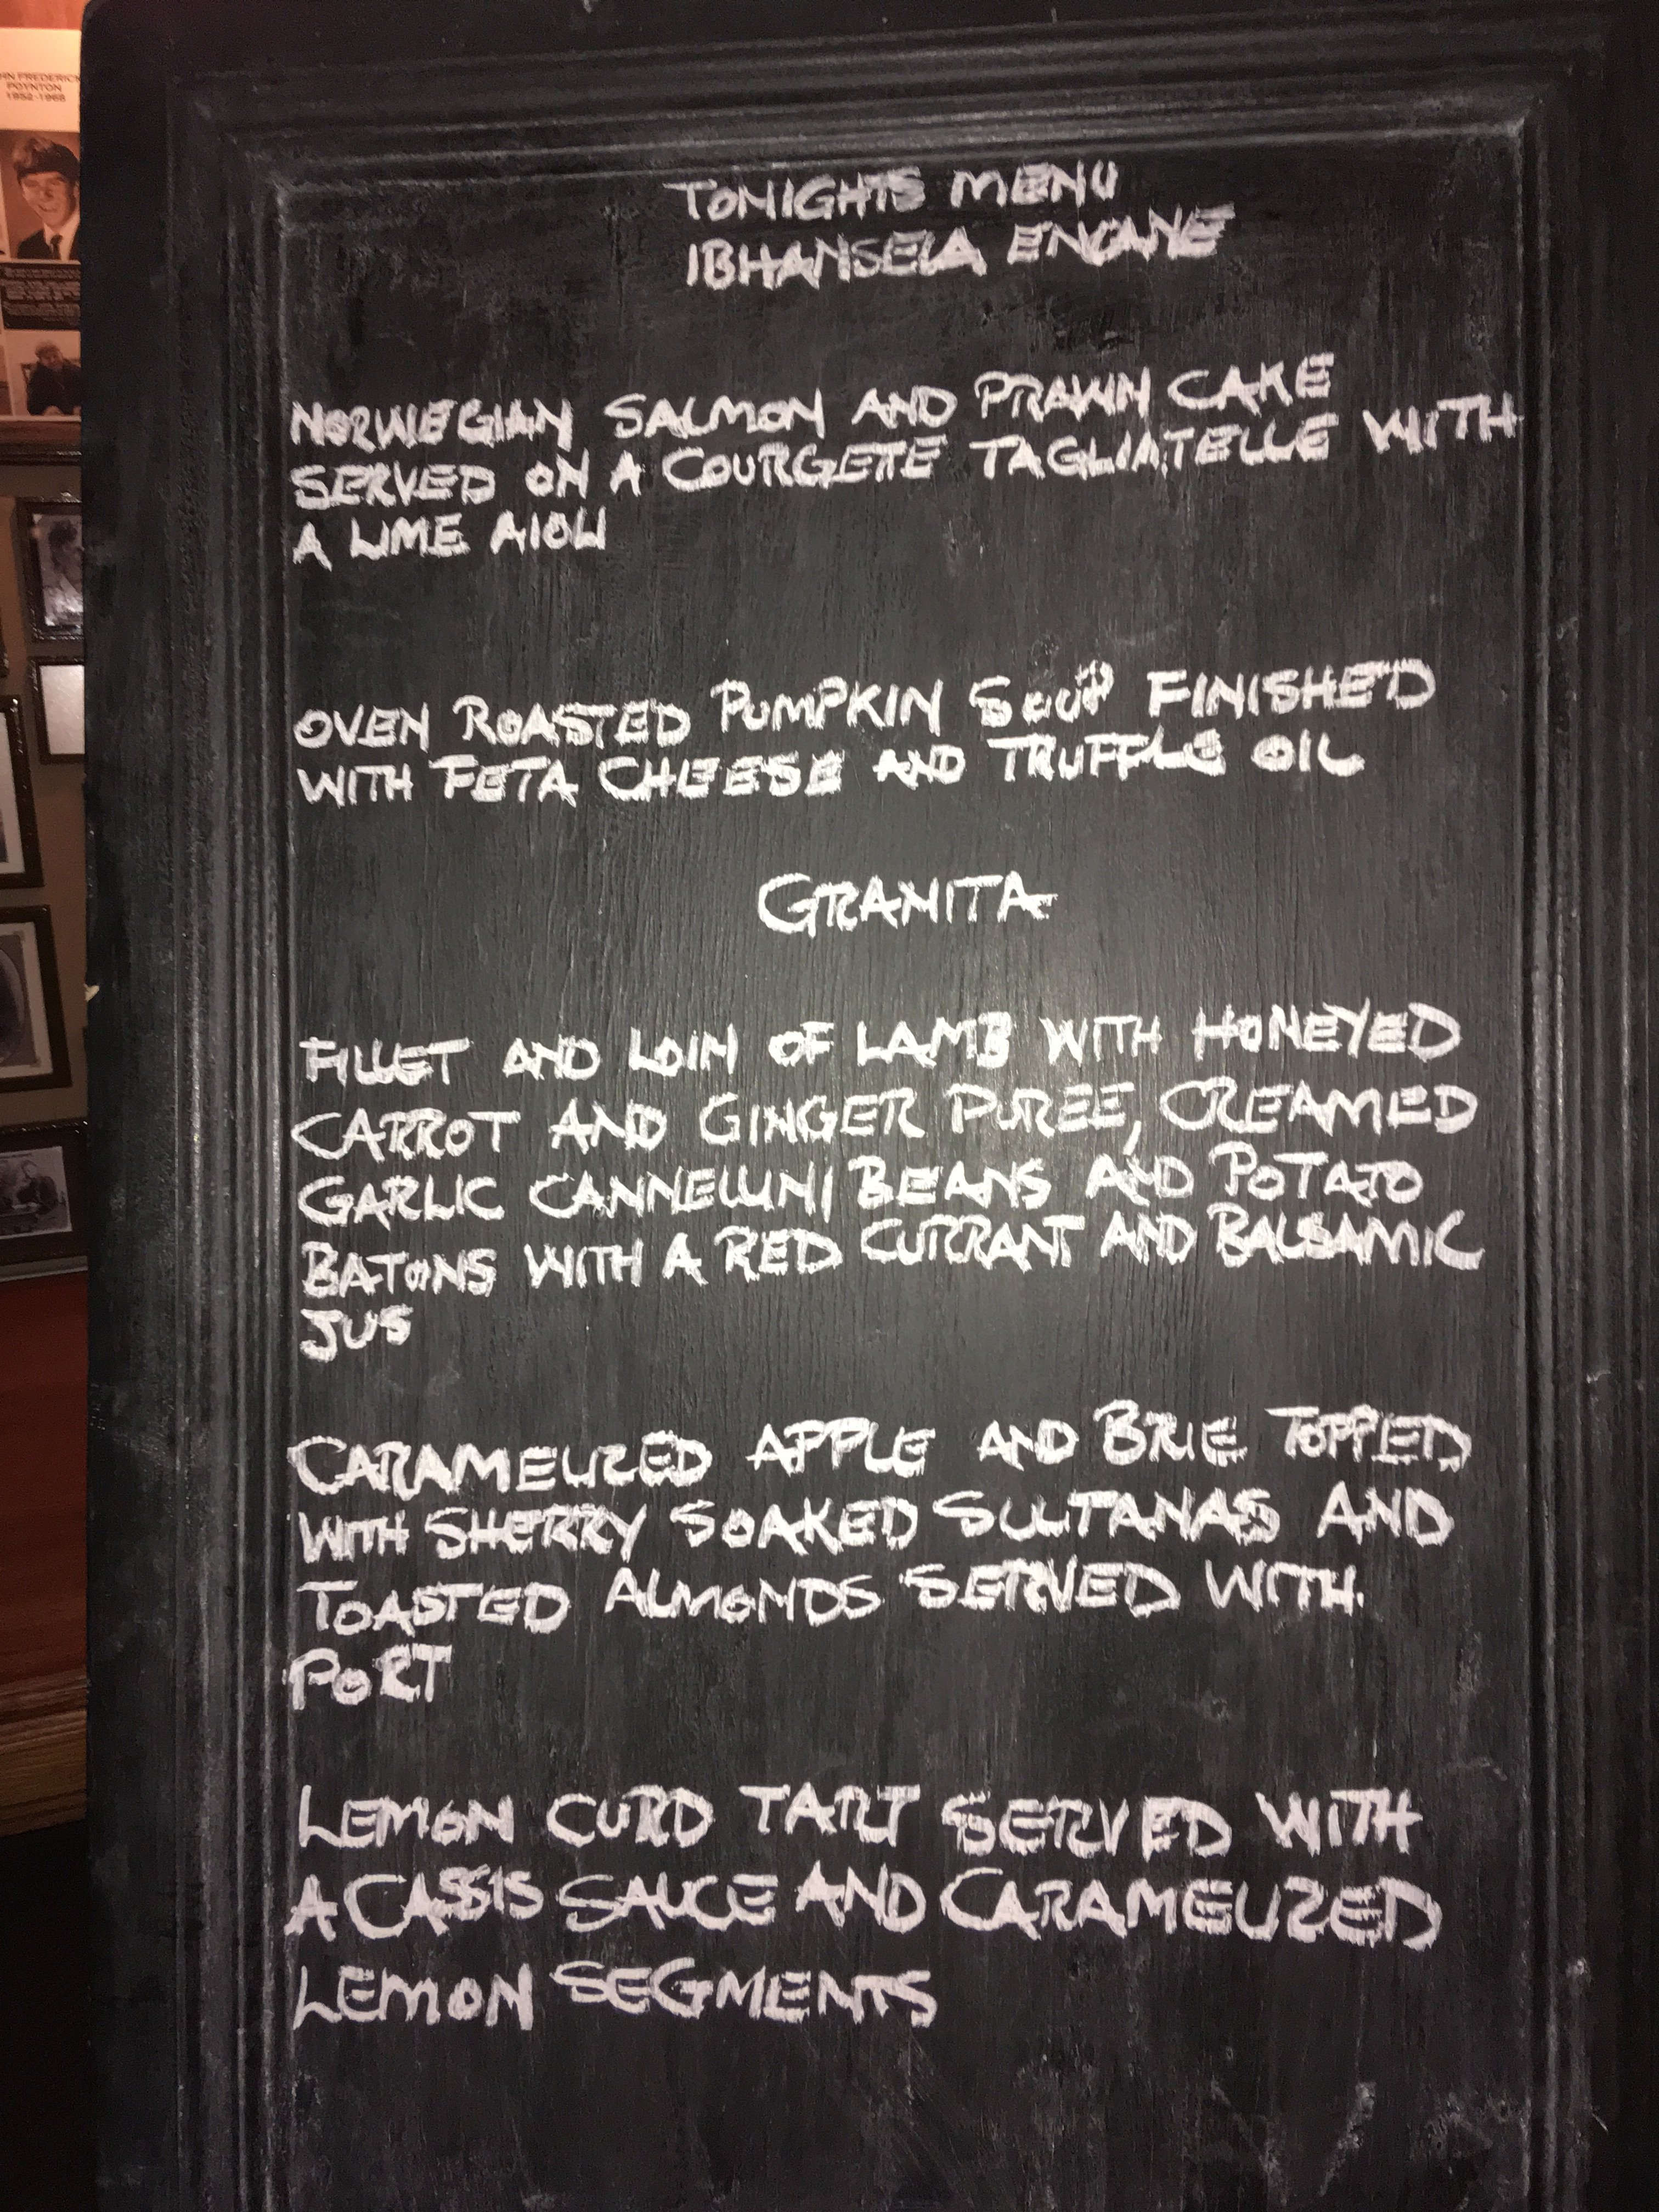 HN FREDERICK
POYNTON
1952-1968
TONIGHTS MENU
IBHANSELA ENCANE
NORWEGIAN SALMON AND PRAWN CAKE
SERVED ON A COURGETTE TAGLIATELLE WITH
A LIME AIOLI
OVEN ROASTED PUMPKIN SOUP FINISHED
WITH FETA CHEESE AND TRUFFLE OIL
GRANITA
FILLET AND LOIN OF LAMB WITH HONEYED
CARROT AND GINGER PUREE, CREAMED
GARLIC CANNELLINI BEANS AND POTATO
BATONS WITH A RED CURRANT AND BALSAMIC
JUS
CARAMELIZED APPLE AND BRIE TOPPED
WITH SHERRY SOAKED SULTANAS AND
TOASTED ALMONDS SERVED WITH
PORT
LEMON CURD TART SERVED WITH
A CASSIS SAUCE AND CARAMELIZED
LEMON SEGMENTS